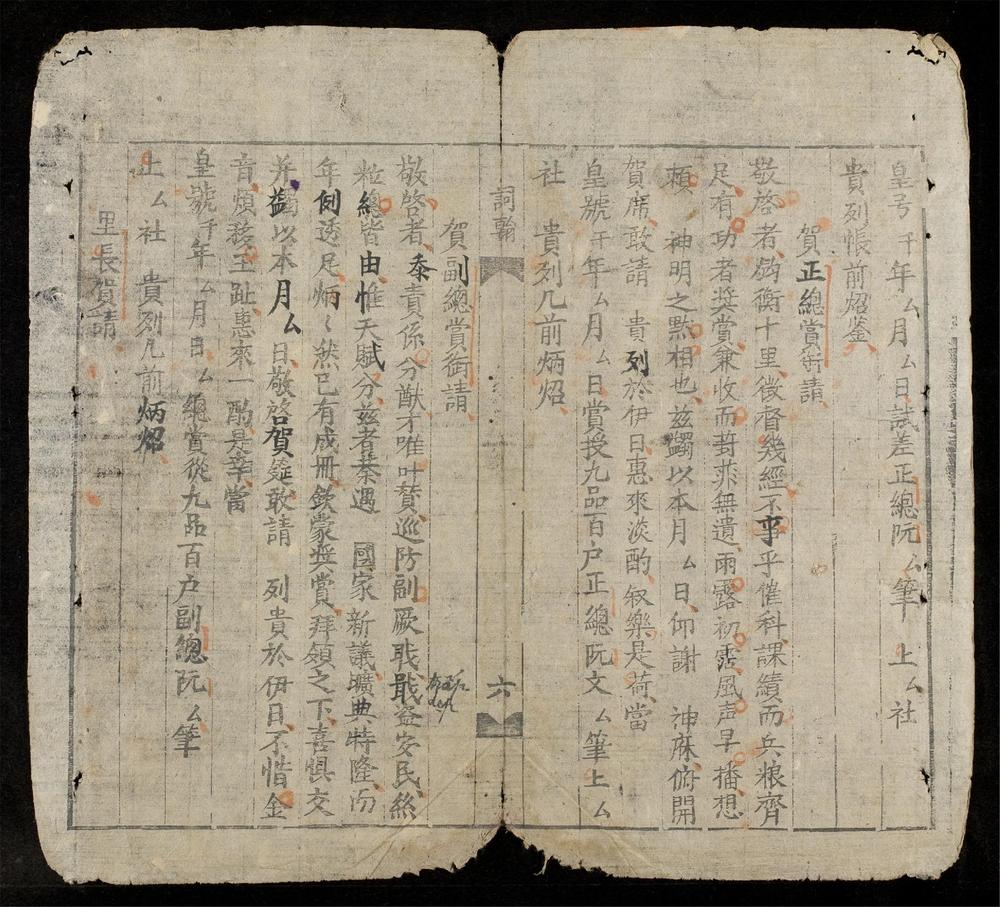 皇号 千年ム月ム日試差正總阮ム筆 上ム社
貴列帳前炤鉴
賀正總賞銜請
敬啓者芶衡十里徵督幾經不事乎催科課績而兵粮齊
足有功者奨賞兼收而葑菲無遺雨露初霑風声早播想
頼 神明之黙相也兹蠲以本月ム日仰謝 神庥俯開
賀席敢請 貴列於伊日惠來淡酌叙樂是荷當
皇號千年ム月ム日賞授九品百户正總阮文ム筆上ム
社 貴列几前炳炤
詞翰
六
賀副總賞銜請
敬啓者忝責係分猷才唯叶賛巡防副厥職戢盗安民絲
粒總皆由惟天賦分兹者荼遇 國家新議壙典特隆而
年例透足炳〻然已有成冊欽蒙奨賞拜領之下喜惧交
并蠲以本月ム日敬啓賀筵敢請 列貴於伊日不惜金
音煩移玉趾惠來一酌是幸當
皇號千年ム月日ム總賞從九品百户副總阮ム筆
上ム社 貴列几前炳炤
里長賀請